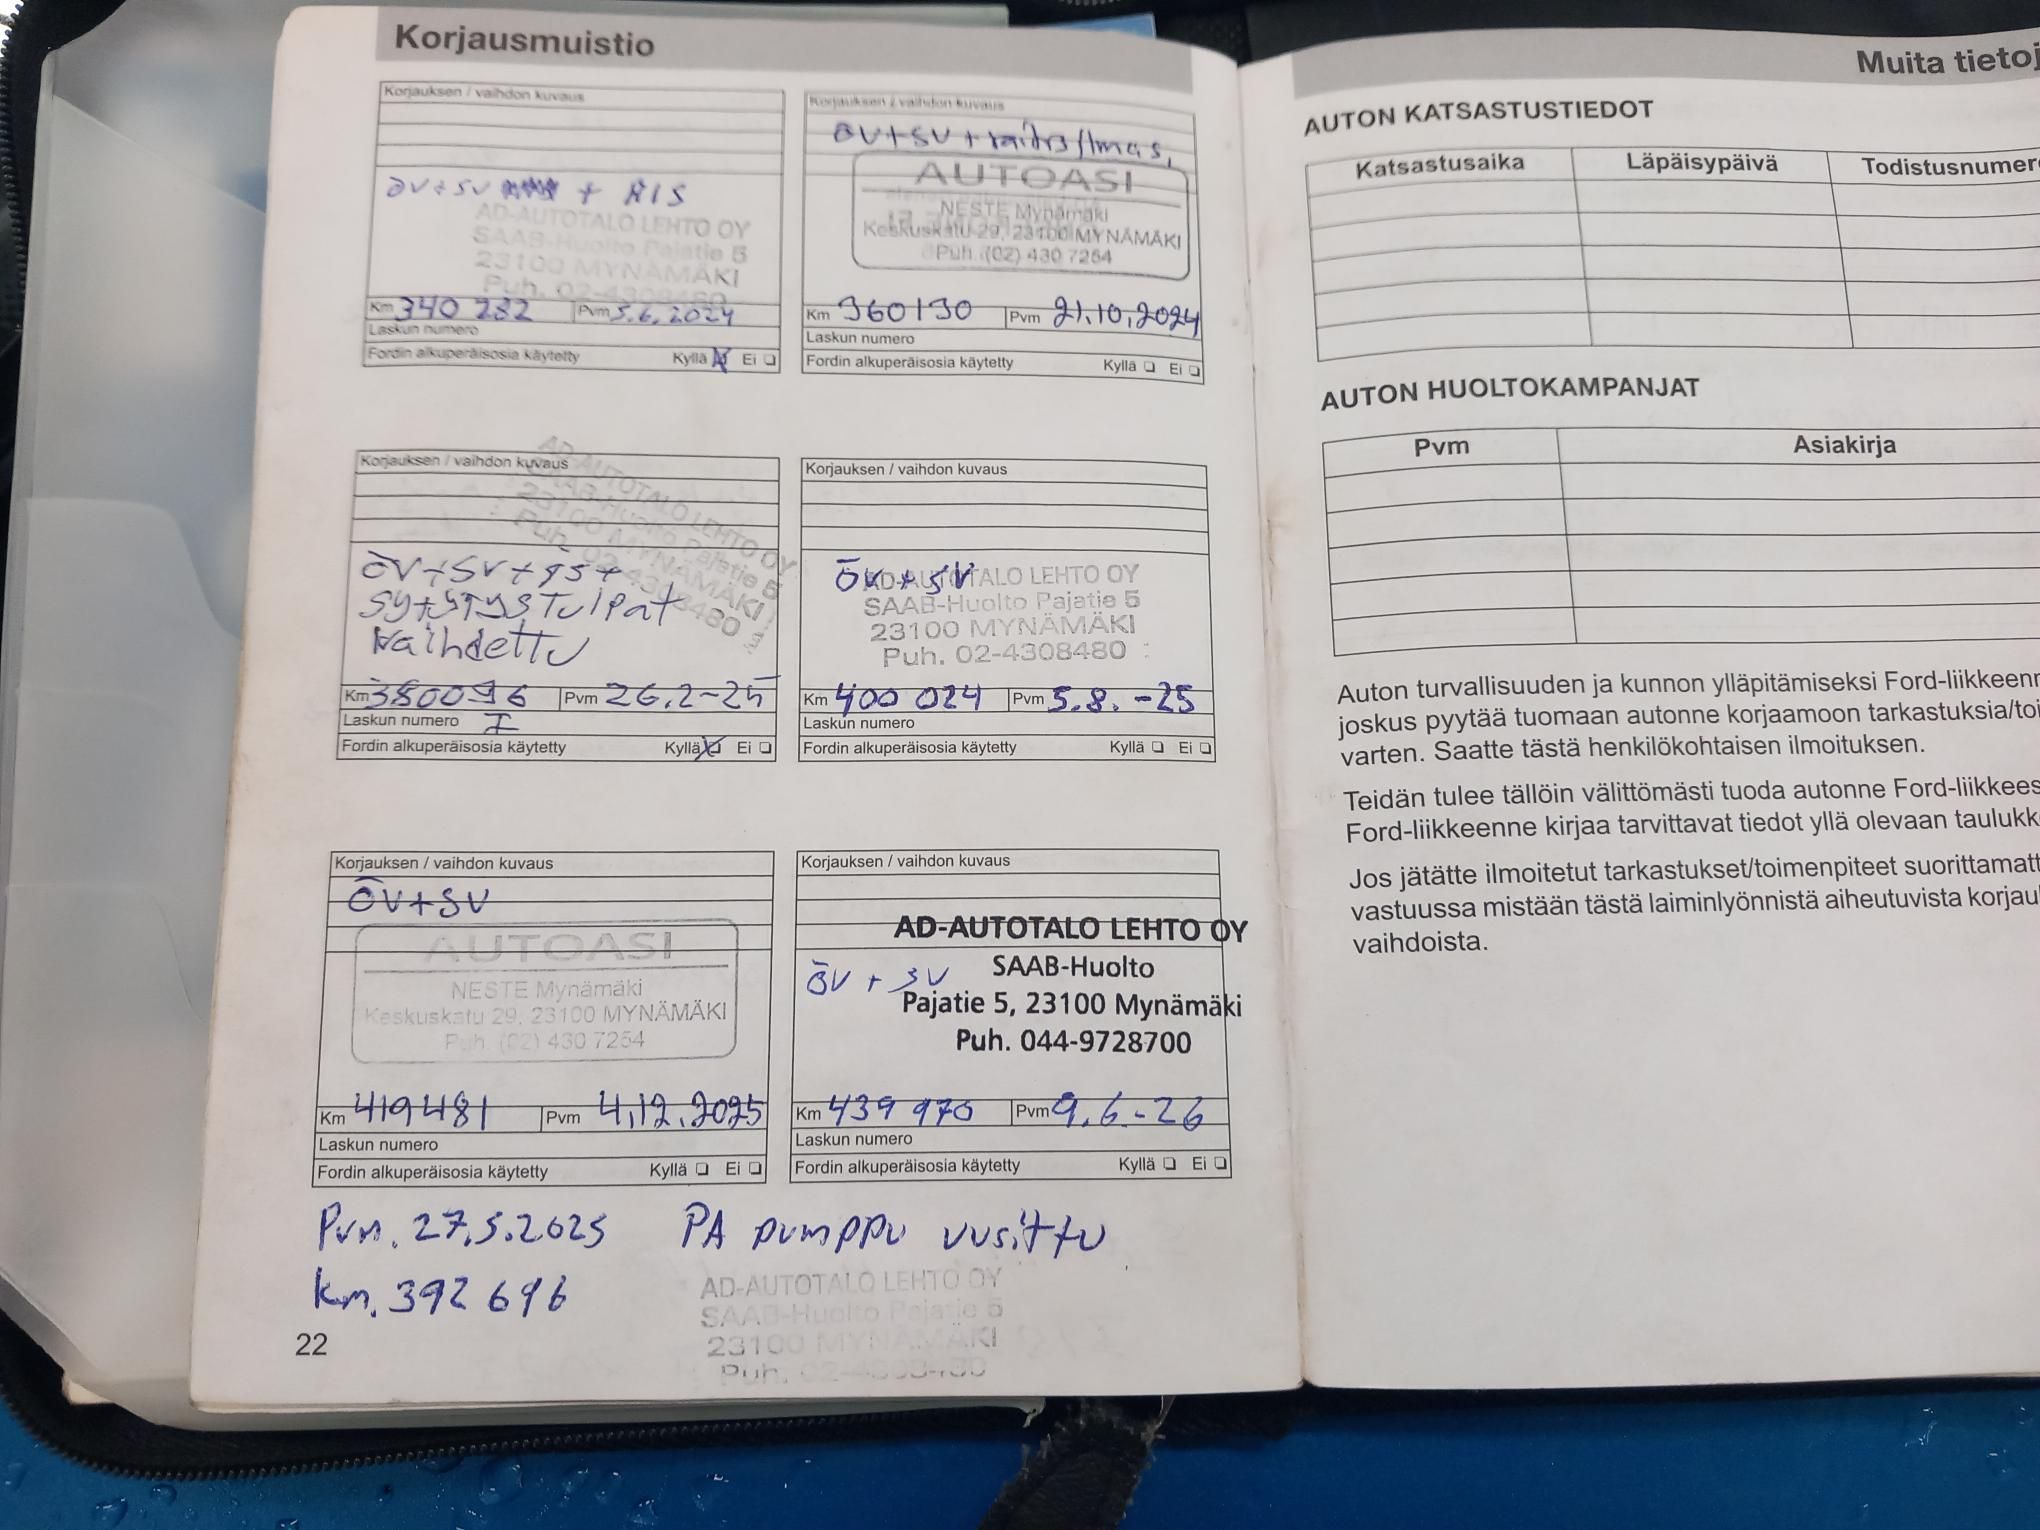 Korjausmuistio
Korjauksen / vaihdon kuvaus
öV+SV + RIS
AD-AUTOTALO LEHTO OY
SAAB-Huolto Pajatie 5
23100 MYNÄMÄKI
Puh. 02-4308480
Km 340 282 Pvm 5.6.2024
Laskun numero
Fordin alkuperäisosia käytetty Kyllä Ei
Korjauksen / vaihdon kuvaus
öV+SV +
AUTOASI
NESTE Mynämäki
Keskuskatu 29, 23100 MYNÄMÄKI
Puh. (02) 430 7254
Km 360130 Pvm 21.10.2024
Laskun numero
Fordin alkuperäisosia käytetty Kyllä Ei
Korjauksen / vaihdon kuvaus
AD-AUTOTALO LEHTO OY
SAAB-Huolto Pajatie 5
23100 MYNÄMÄKI
Puh. 02-4308480
öV+SV+ +
Sytytystulpat
vaihdettu
Km 380096 Pvm 26.2-25
Laskun numero
Fordin alkuperäisosia käytetty Kyllä Ei
Korjauksen / vaihdon kuvaus
öV+SV
AD-AUTOTALO LEHTO OY
SAAB-Huolto Pajatie 5
23100 MYNÄMÄKI
Puh. 02-4308480
Km 400 024 Pvm 5.8.-25
Laskun numero
Fordin alkuperäisosia käytetty Kyllä Ei
Korjauksen / vaihdon kuvaus
öV+SV
AUTOASI
NESTE Mynämäki
Keskuskatu 29, 23100 MYNÄMÄKI
Puh. (02) 430 7254
Km 419481 Pvm 4.12.2025
Laskun numero
Fordin alkuperäisosia käytetty Kyllä Ei
Korjauksen / vaihdon kuvaus
AD-AUTOTALO LEHTO OY
SAAB-Huolto
öV + SV
Pajatie 5, 23100 Mynämäki
Puh. 044-9728700
Km 439 970 Pvm 9.6.-26
Laskun numero
Fordin alkuperäisosia käytetty Kyllä Ei
Pvm. 27.5.2025 PA pumppu uusittu
km. 392 696
AD-AUTOTALO LEHTO OY
SAAB-Huolto Pajatie 5
23100 MYNÄMÄKI
Puh. 02-4308480
22
Muita tietoj
AUTON KATSASTUSTIEDOT
Katsastusaika Läpäisypäivä Todistusnumero
AUTON HUOLTOKAMPANJAT
Pvm Asiakirja
Auton turvallisuuden ja kunnon ylläpitämiseksi Ford-liikkeenn
joskus pyytää tuomaan autonne korjaamoon tarkastuksia/toi
varten. Saatte tästä henkilökohtaisen ilmoituksen.
Teidän tulee tällöin välittömästi tuoda autonne Ford-liikkees
Ford-liikkeenne kirjaa tarvittavat tiedot yllä olevaan taulukk
Jos jätätte ilmoitetut tarkastukset/toimenpiteet suorittamatt
vastuussa mistään tästä laiminlyönnistä aiheutuvista korjau
vaihdoista.